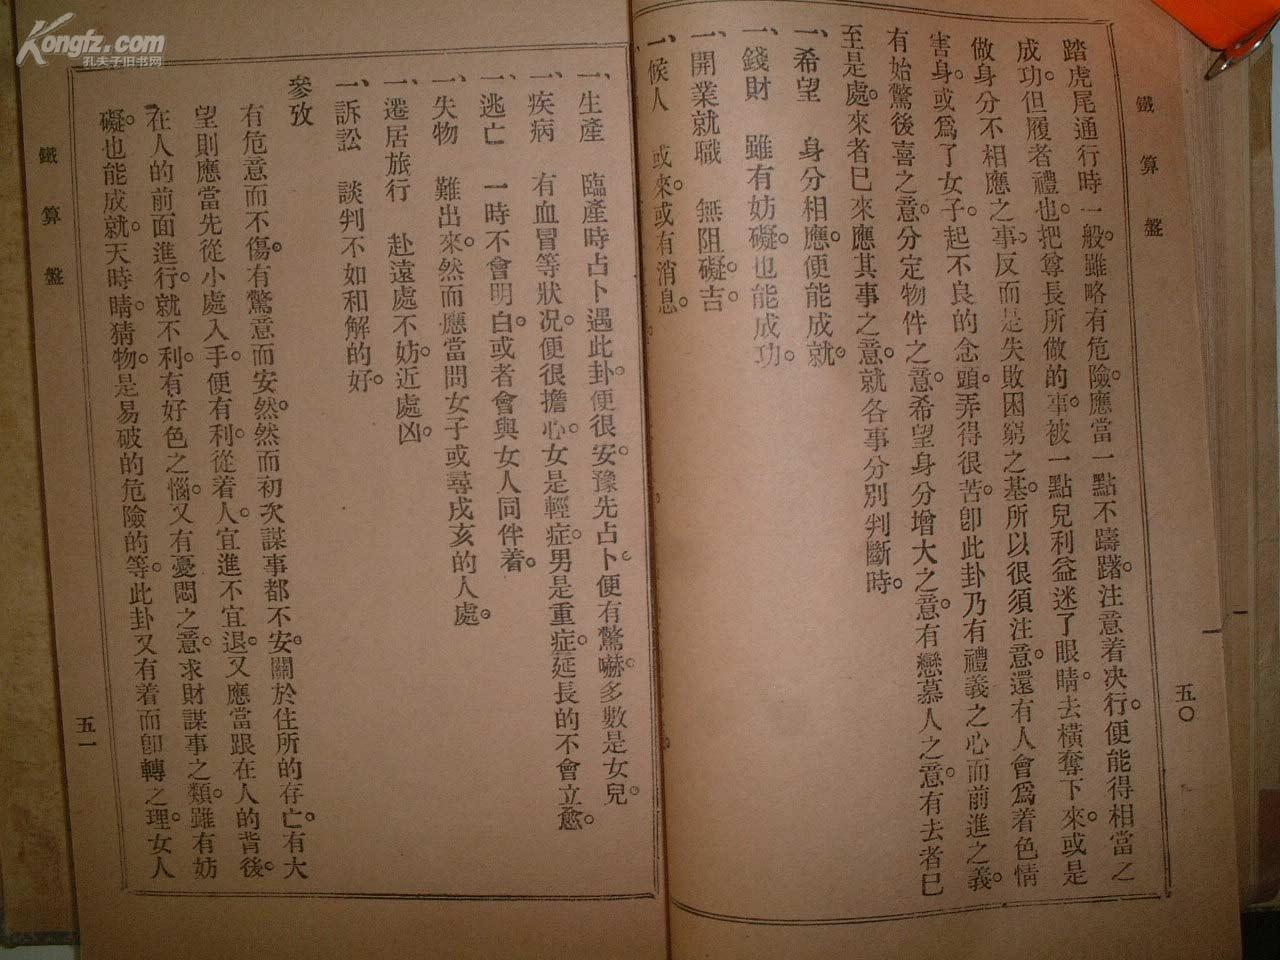 Kongfz.com
孔夫子旧书网
鐵算盤
五〇
踏虎尾通行時一般。雖略有危險。應當一點不躊躇。注意着决行。便能得相當之
成功。但履者禮也。把尊長所做的事。被一點兒利益迷了眼睛。去橫奪下來。或是
做身分不相應之事。反而是失敗困窮之基。所以很須注意。還有人會爲着色情
害身。或爲了女子。起不良的念頭。弄得很苦。卽此卦乃有禮義之心而前進之義。
有始驚後喜之意。分定物件之意。希望身分增大之意。有戀慕人之意。有去者巳
至是處。來者巳來應其事之意。就各事分別判斷時。
一、希望　身分相應。便能成就。
一、錢財　雖有妨礙。也能成功。
一、開業就職　無阻礙。吉。
一、候人　或來。或有消息。
一、生產　臨產時占卜遇此卦。便很安。豫先占卜。便有驚嚇。多數是女兒。
一、疾病　有血冒等狀况。便很擔心。女是輕症。男是重症。延長的不會立愈。
一、逃亡　一時不會明白。或者會與女人同伴着。
一、失物　難出來。然而應當問女子或尋戌亥的人處。
一、遷居旅行　赴遠處不妨。近處凶。
一、訴訟　談判不如和解的好。
參攷
有危意而不傷。有驚意而安然。然而初次謀事都不安。關於住所的存亡。有大
望則應當先從小處入手。便有利。從着人。宜進不宜退。又應當跟在人的背後。
在人的前面進行。就不利。有好色之惱。又有憂悶之意。求財謀事之類。雖有妨
礙。也能成就。天時。晴。猜物。是易破的危險的等。此卦又有着而卽轉之理。女人
鐵算盤
五一